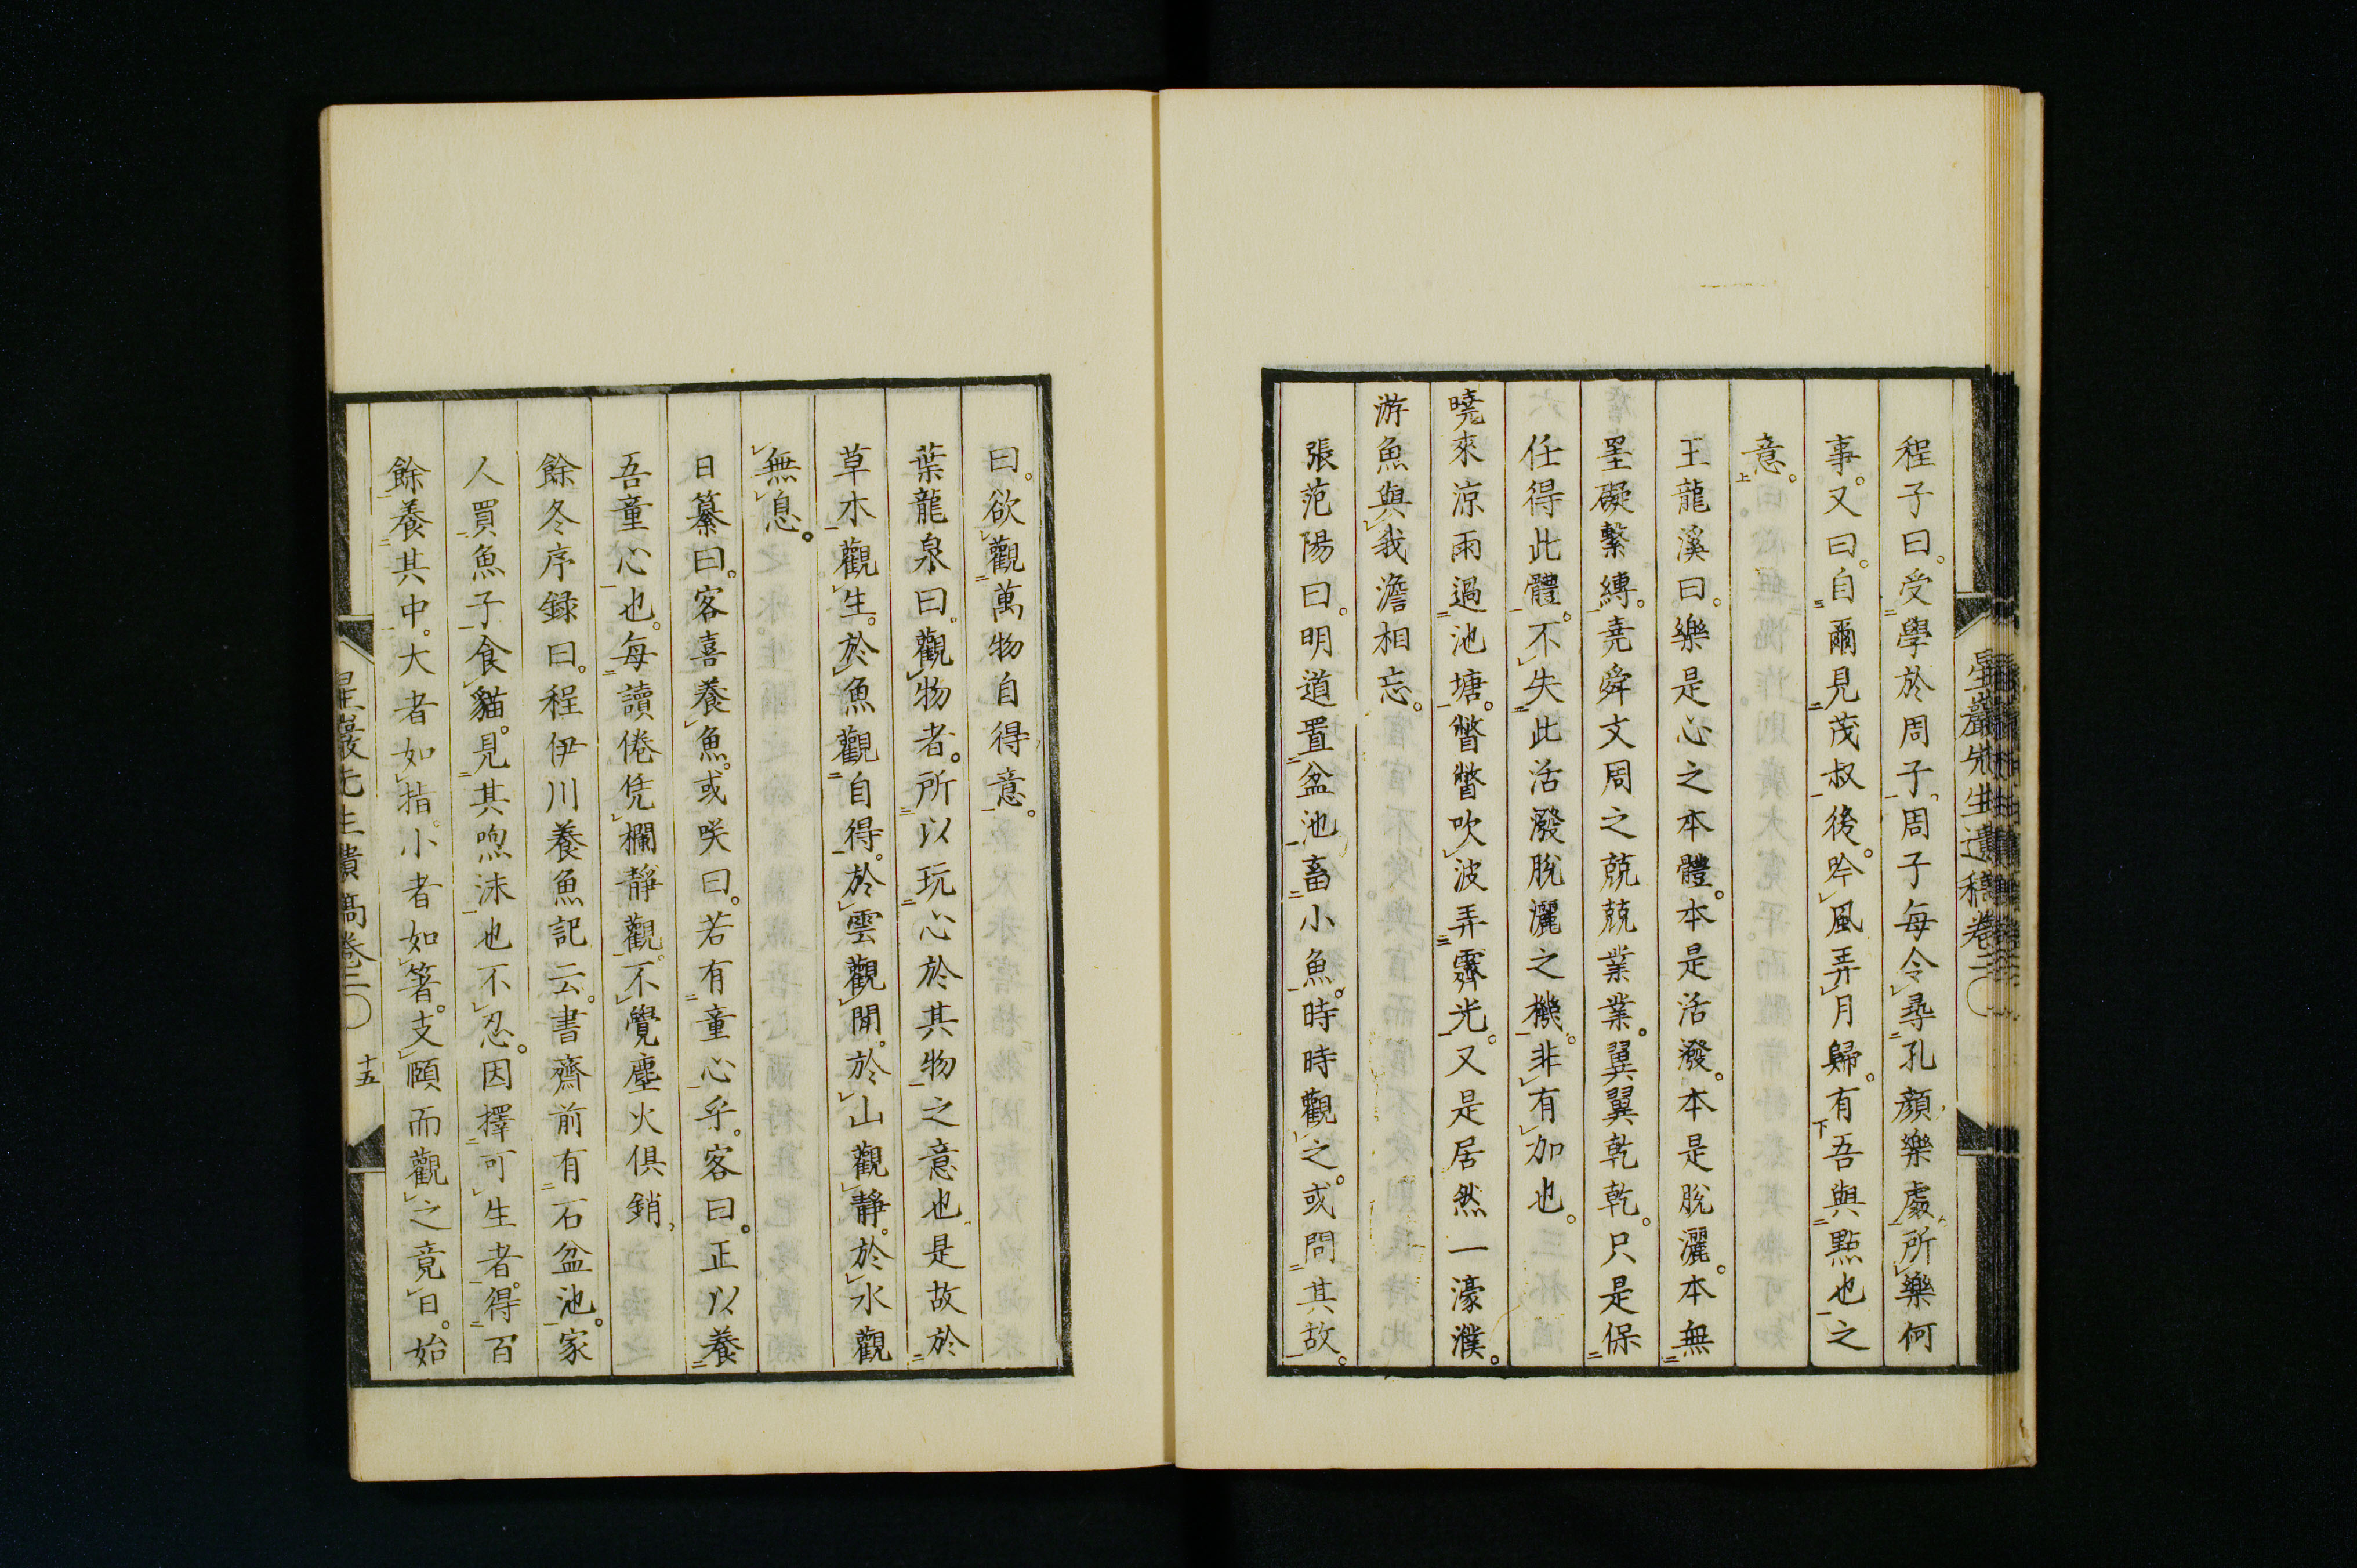 程子曰。受學於周子。周子每令尋孔顏樂處所樂何
事。又曰。自爾見茂叔後。吟風弄月歸。有吾與點也之
意。
王龍溪曰。樂是心之本體。本是活潑。本是脫灑。本無
罣礙繫縛。堯舜文周之兢兢業業。翼翼乾乾。只是保
任得此體。不失此活潑脫灑之機。非有加也。
曉來涼雨過池塘。瞥瞥吹波弄霽光。又是居然一濠濮。
游魚與我澹相忘。
張范陽曰。明道置盆池畜小魚。時時觀之。或問其故。
曰。欲觀萬物自得意。
葉龍泉曰。觀物者。所以玩心於其物之意也。是故於
草木觀生。於魚觀自得。於雲觀閒。於山觀靜。於水觀
無息。
日纂曰。客喜養魚。或咲曰。若有童心乎。客曰。正以養
吾童心也。每讀倦凭欄靜觀。不覺塵火俱銷
餘冬序録曰。程伊川養魚記云。書齋前有石盆池。家
人買魚子食貓。見其喣沫也不忍。因擇可生者。得百
餘養其中。大者如指。小者如箸。支頤而觀之竟日。始
星巖先生遺稿卷二
十五